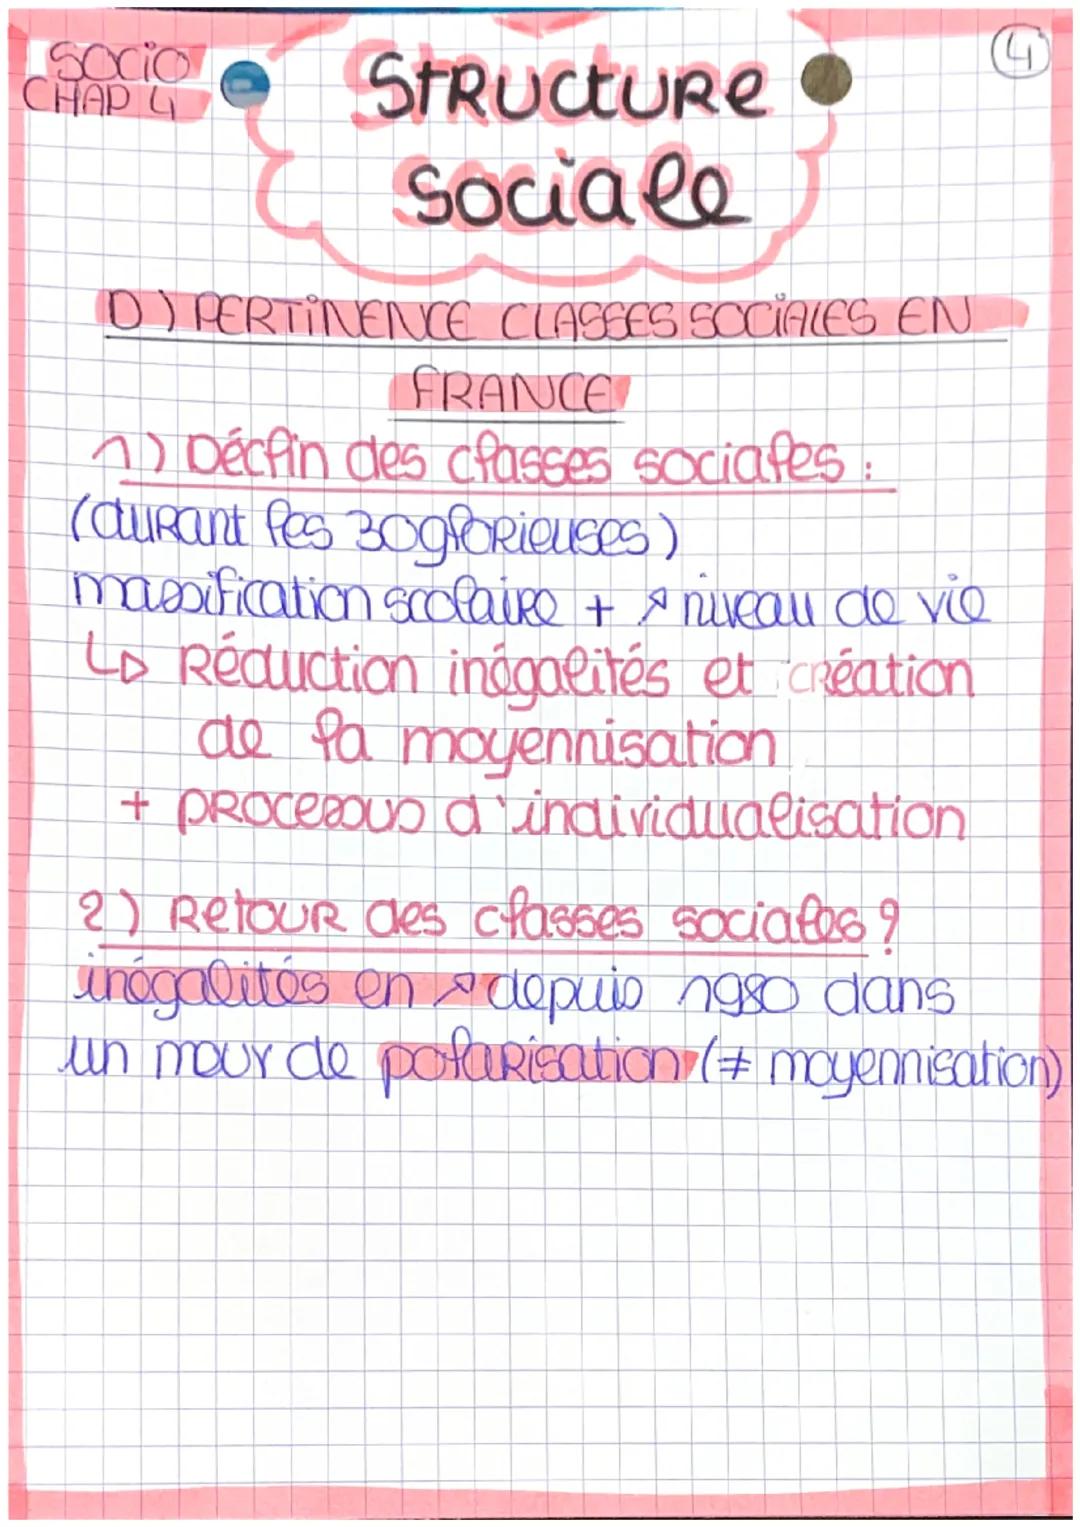 SOCIO
CHAP 4
4
STRUCTURE
sociale
D) PERTINENCE CLASSES SOCIALES EN
FRANCE
1) Déclin des classes sociales :
(durant les 30 glorieuses)
massification scolaire + ↗ niveau de vie
↳ Réduction inégalités et création
de la moyennisation
+ processus d'individualisation
2) Retour des classes sociales ?
inégalités en ↗ depuis 1980 dans
un mour de polarisation (≠ moyennisation)